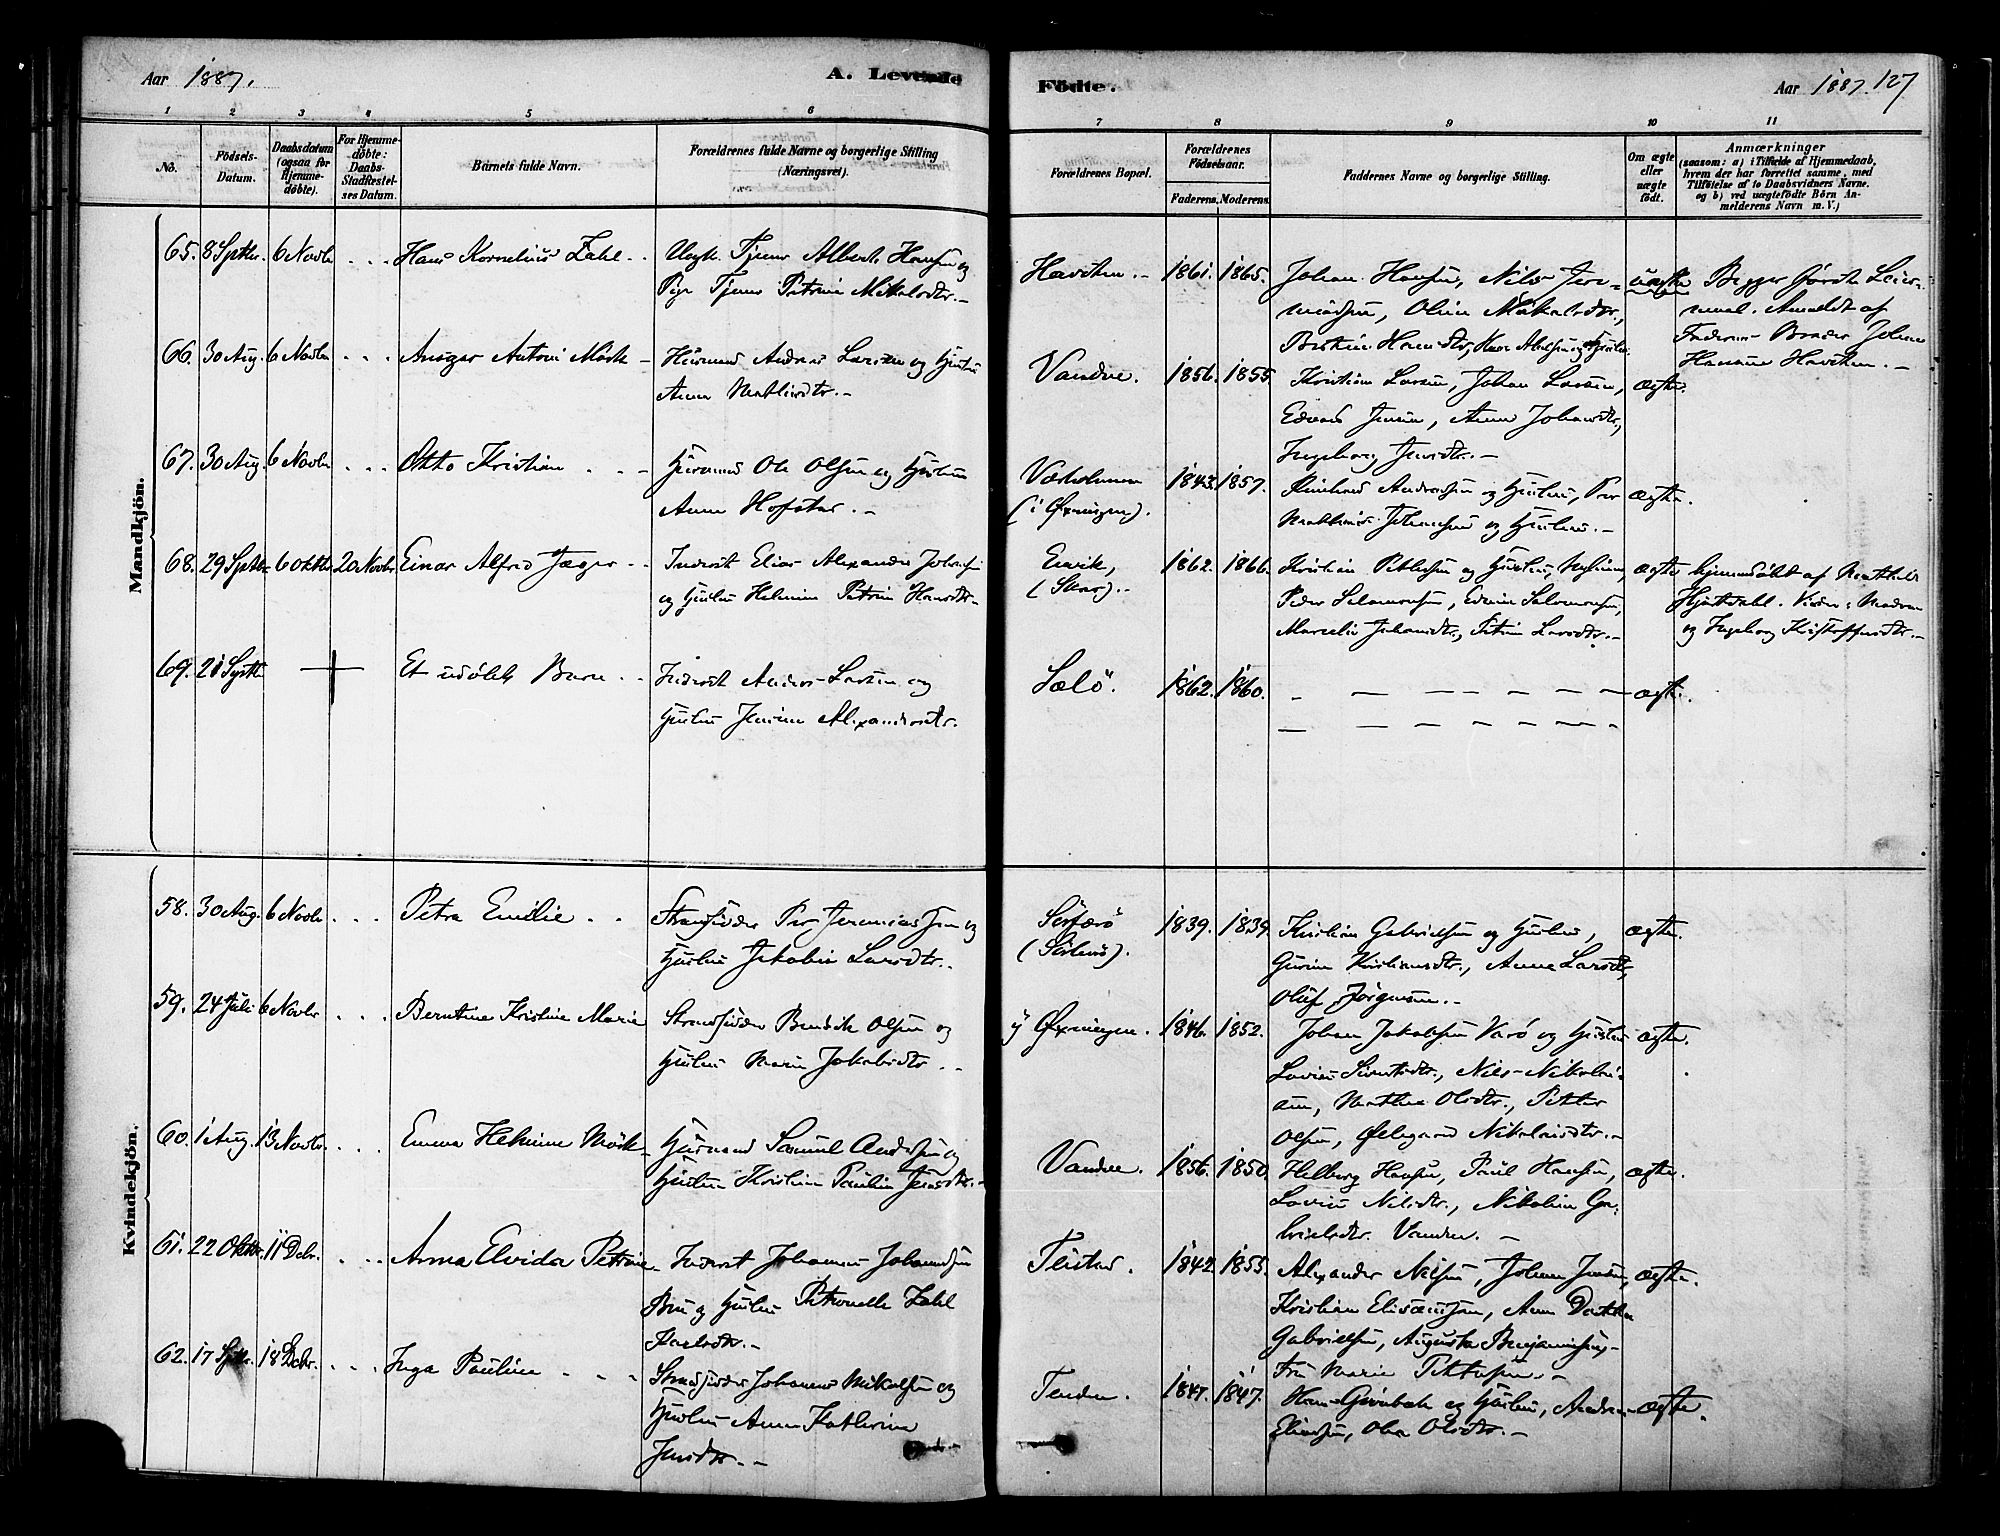 Aar 1887.
A. Levende
1 2 3 4 5 6
No.
Födsels-Datum.
Daabsdatum (ogsaa for Hjemmedøbte).
For Hjemmedöbte: Daabs-Stadfæstelses Datum.
Barnets fulde Navn.
Forældrenes fulde Navne og borgerlige Stilling (Næringsvei).
Mandkjön.
65. 8 Septbr. 6 Novbr. Hans Kornelius Zahl
Ungk. Tjener Albert Hansen og
Pige Tjener Petrine Mikalsdtr.
66. 30 Aug. 6 Novbr. Ansgar Antoni Mörk
Husmand Andreas Larsen og Hustru
Anna
67. 30 Aug. 6 Novbr. Otto Kristian
Husmand Ole Olsen og Hustru
Anna Hofstad.
68. 29 Septbr. 6 Oktbr. 20 Novbr. Einar Alfred Jæger
Inderst Elias Alexander
og Hustru Helmine Petrine Hansdtr.
69. 21 Septbr. Et udöbt Barn
Inderst Anders Larsen og
Hustru Jensine Alexandersdtr.
Kvindekjön.
58. 30 Aug. 6 Novbr. Petra Emilie
Strandsidder Per Jeremiassen og
Hustru Jakobine Larsdtr.
59. 24 Juli 6 Novbr. Berntine Kristine Marie
Strandsidder Bendik Olsen og
Hustru Marie Jakobsdtr.
60. 1 Aug. 13 Novbr. Emma Helmine Mörk
Husmand Samuel Andersen og
Hustru Kristine Pauline Jensdtr.
61. 22 Oktbr. 11 Decbr. Anna Elvida Petrine
Inderst Johannes Johannessen
og Hustru Petronelle Zahl
Karlsdtr.
62. 17 Septbr. 18 Decbr. Inga Pauline
Strandsidder Johannes Mikalsen og
Hustru Anna Kathrine
Jensdtr.
Födte.
Aar 1887. 127
7 8 9 10 11
Forældrenes Bopæl.
Forældrenes Födselsaar.
Faderens. Moderens.
Faddernes Navne og borgerlige Stilling.
Om ægte eller uægte födt.
Anmærkninger
(saasom: a) i Tilfælde af Hjemmedaab,
hvem der har forrettet samme, med
Tilföielse af to Daabsvidners Navne.
og b) ved uægtefödte Börn Anmelderens Navn m. V.)
1861. 1865. Johan Hansen, Nils Jere-
miassen, Oline Mikalsdtr.,
uægte
Begges förste Leier-
maal. Anmeldt af
Faderens Broder Johan
Hansen
Vandve. 1856. 1855. Kristian Larsen, Johan Larsen,
Edvard Jensen, Anna Johansdtr.,
Ingeborg Jensdtr.
ægte.
Værholmen
(i Øxningen). 1843. 1857. Reinhard Andreassen og Hustru, Per
Johansen og Hustru.
ægte.
1862. 1866. Kristian Pettersen og Hustru,
Peder Salomonsen, Edvin Salomonsen,
Marcelie Johansdtr., Petrine Larsdtr.
ægte
hjemmedöbt af
Hjortdahl. Vidner: Madsen
og Ingeborg Kristoffersdtr.
Sælö. 1862. 1860. ægte.
1839. 1839. Kristian Gabrielsen og Hustru,
Gurine Kristiansdtr., Anne Larsdtr.,
Oluf Jörgensen.
ægte.
Øxningen. 1846. 1852. Johan Jakobsen Varö og Hustru
Lovise Sivertsdtr., Nils Nikolai-
sen, Mathea Olsdtr., Petter
Olsen, Ølegaard Nikolaisdtr.
ægte.
Vandve. 1856. 1850. Helberg Hansen, Paul Hansen,
Lovise Nilsdtr., Nikoline Ga-
brielsdtr. Vandve.
ægte.
1842. 1855. Alexander Nilsen, Johan Jensen,
Kristian Elisæussen, Anna Dorthea
Gabrielsen, Augusta Benjaminsen,
Fru Marie Pettersen.
ægte.
1847. 1847. Hans Grönbæk og Hustru, Andreas
Eliassen, Oline Olsdtr.
ægte.